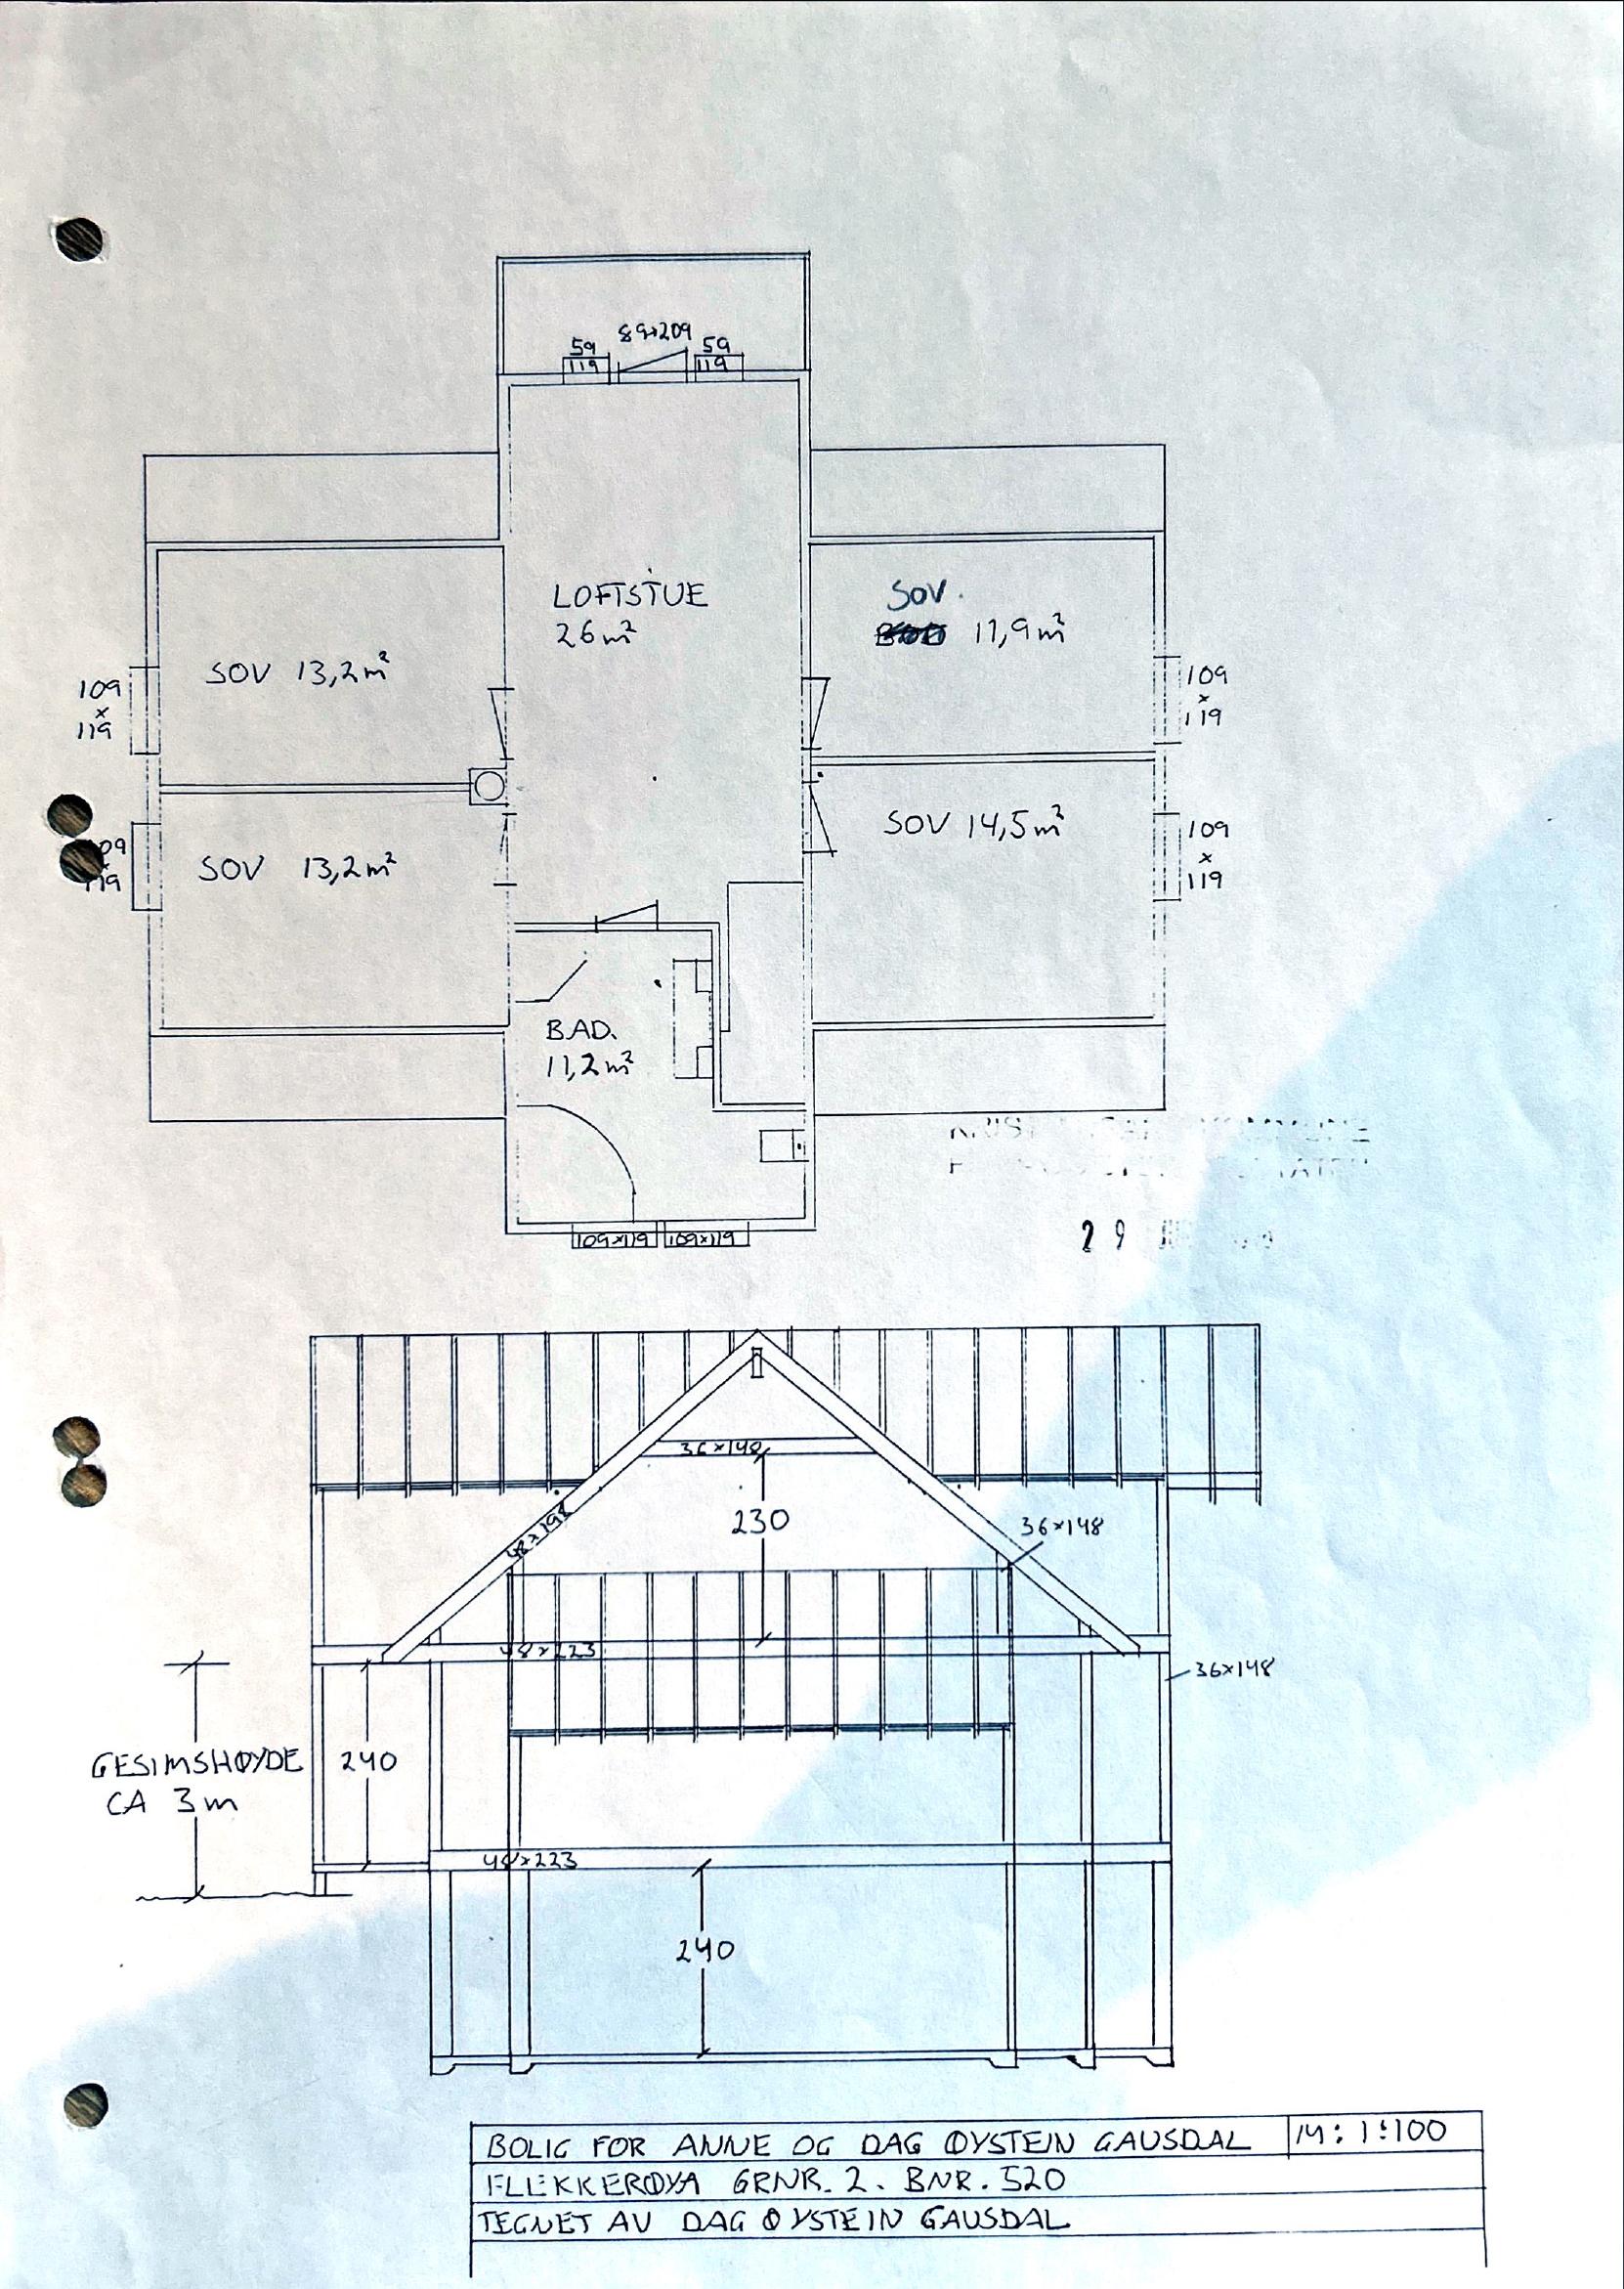 89x209
59
119
59
119
LOFTSTUE
26 m²
SOV.
11,9 m²
SOV 13,2 m²
109
x
119
109
x
119
SOV 14,5 m²
SOV 13,2 m²
109
x
119
BAD.
11,2 m²
109x119 109x119
29
36x148
48x198
230
36x148
48x223
36x148
GESIMSHØYDE
CA 3 m
240
48x223
240
BOLIG FOR ANNE OG DAG ØYSTEIN GAUSDAL M: 1:100
FLEKKERØYA GRNR. 2. BNR. 520
TEGNET AV DAG ØYSTEIN GAUSDAL